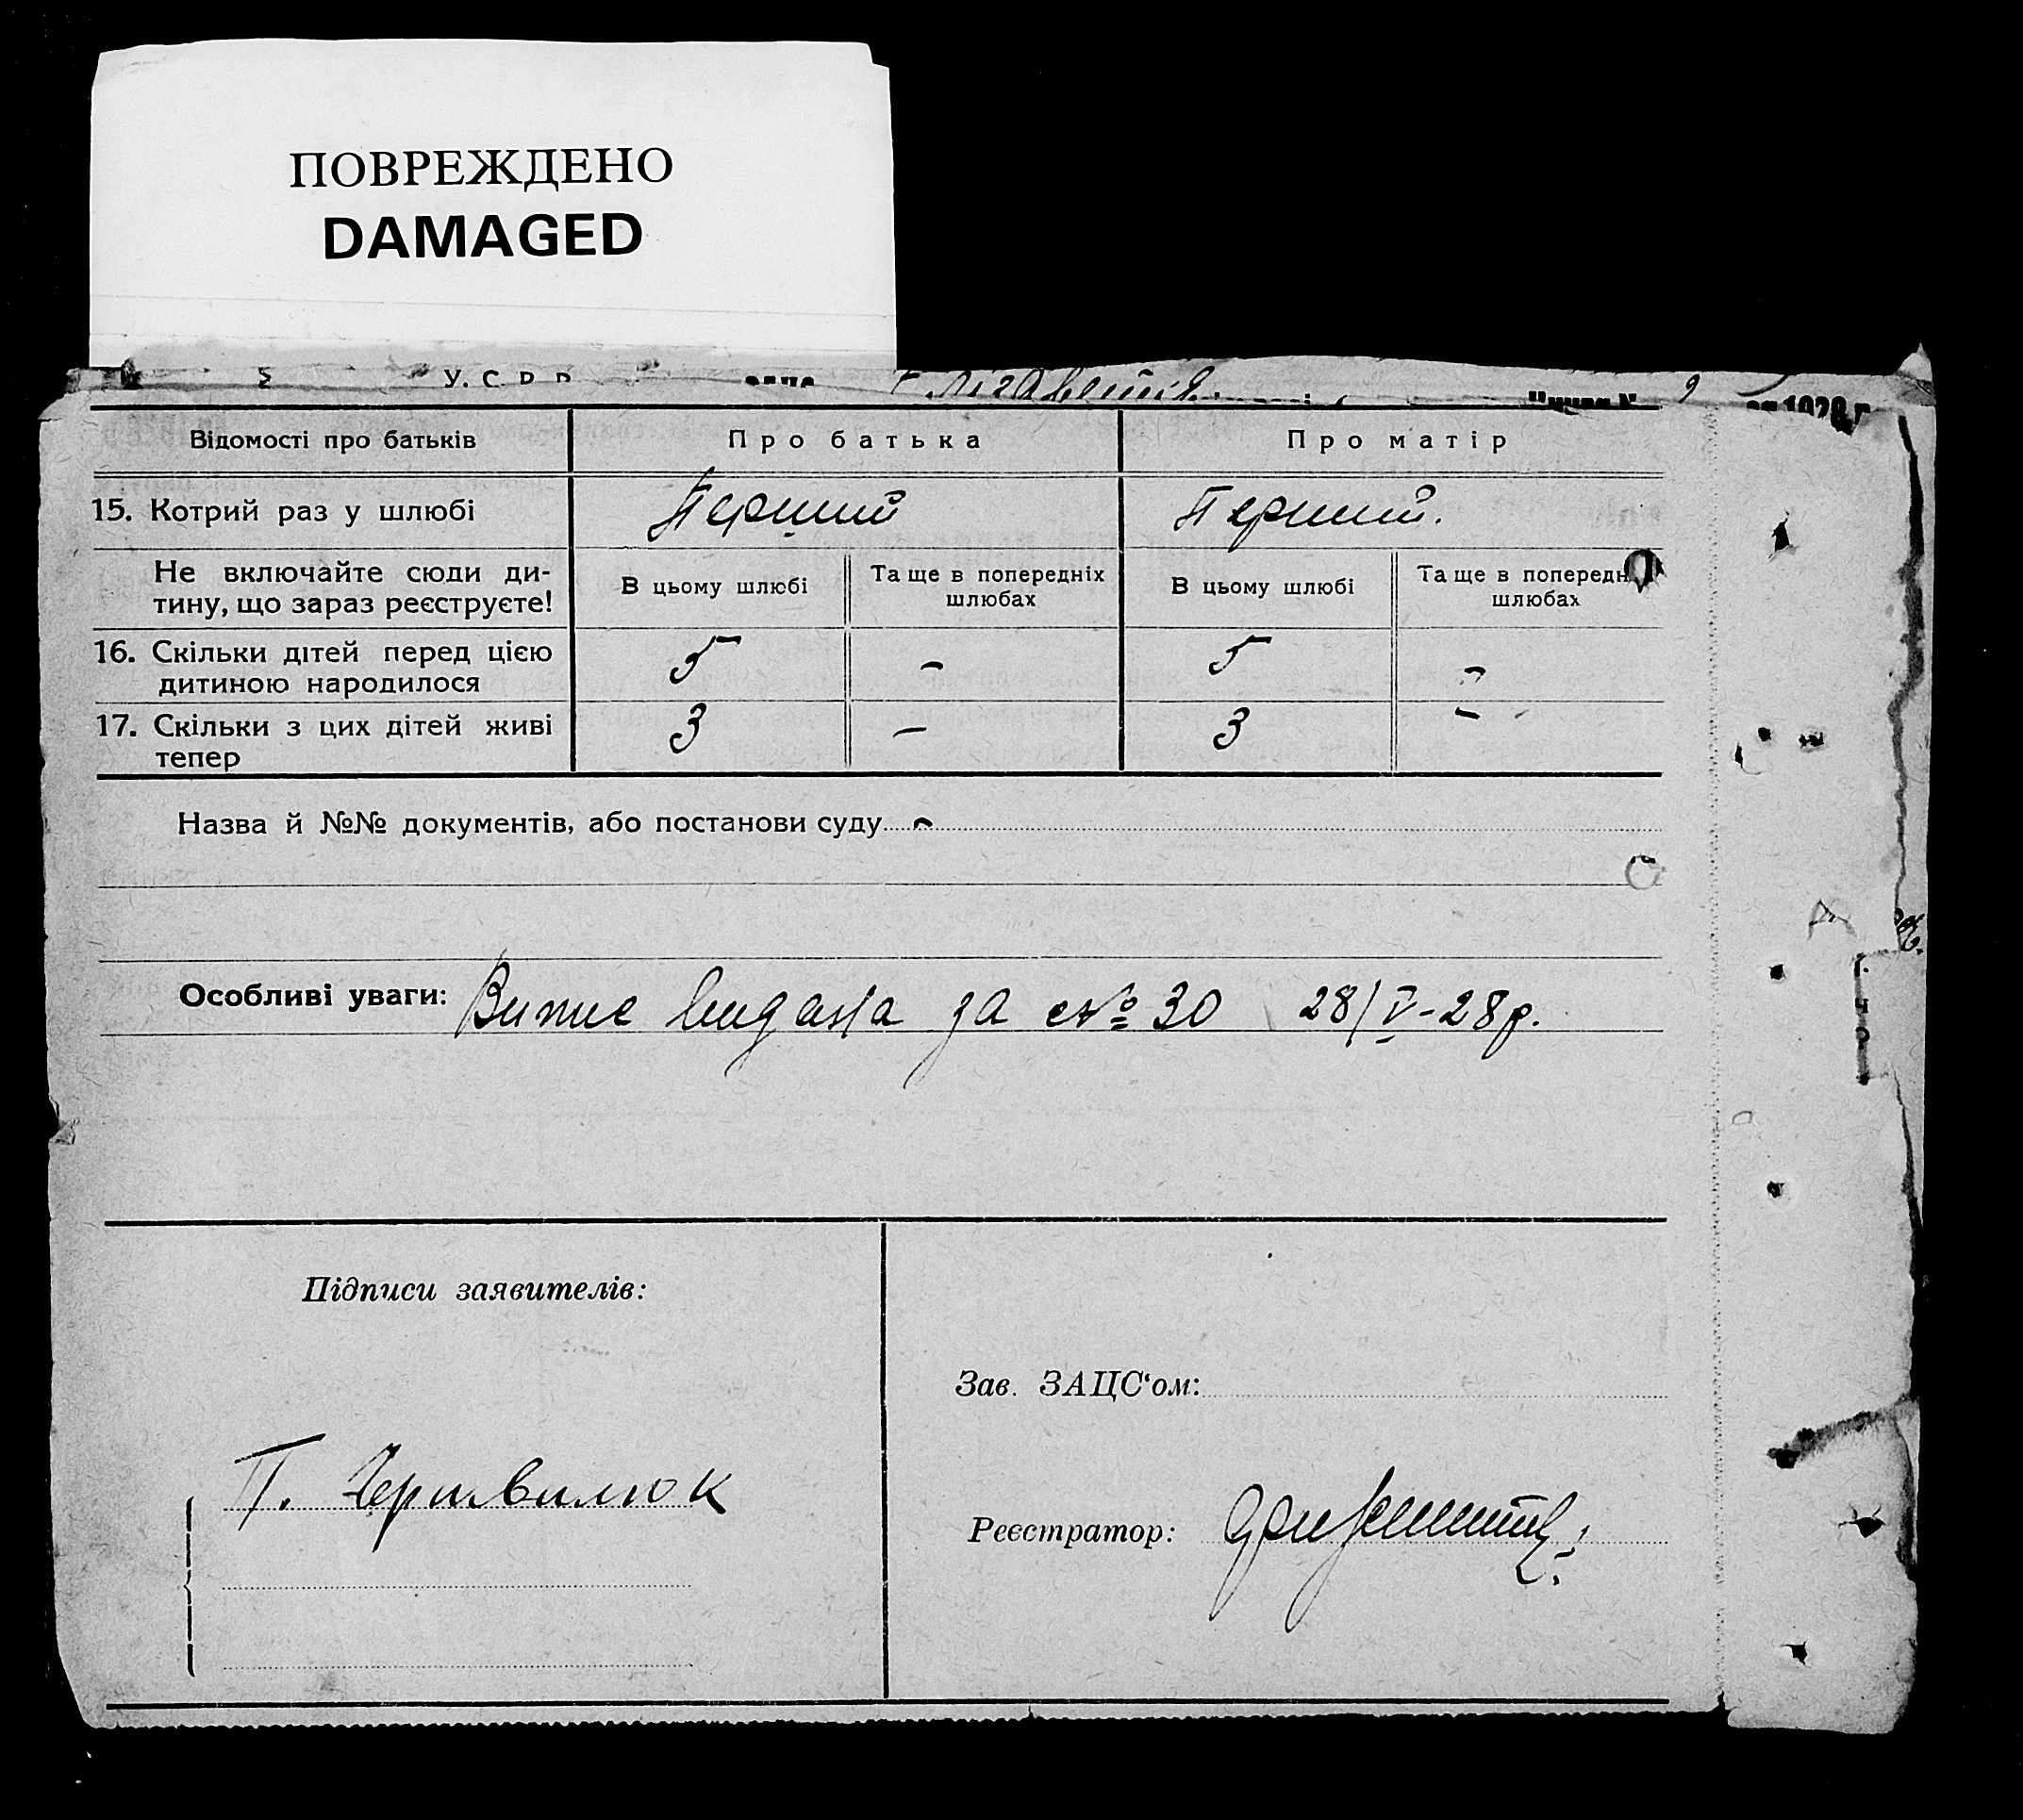 ПОВРЕЖДЕНО
DAMAGED
У. С. Р. Р.
Відомості про батьків Про батька Про матір
15. Котрий раз у шлюбі Перший Перший.
Не включайте сюди ди-
тину, що зараз реєструєте!
В цьому шлюбі Та ще в попередніх
шлюбах
В цьому шлюбі Та ще в попередн
шлюбах
16. Скільки дітей перед цією
дитиною народилося
5 - 5 -
17. Скільки з цих дітей живі
тепер
3 - 3 -
Назва й №№ документів, або постанови суду -
Особливі уваги: Випис видана за № 30 28/V-28р.
Підписи заявителів:
Зав. ЗАЦС'ом:
П.
Реєстратор: